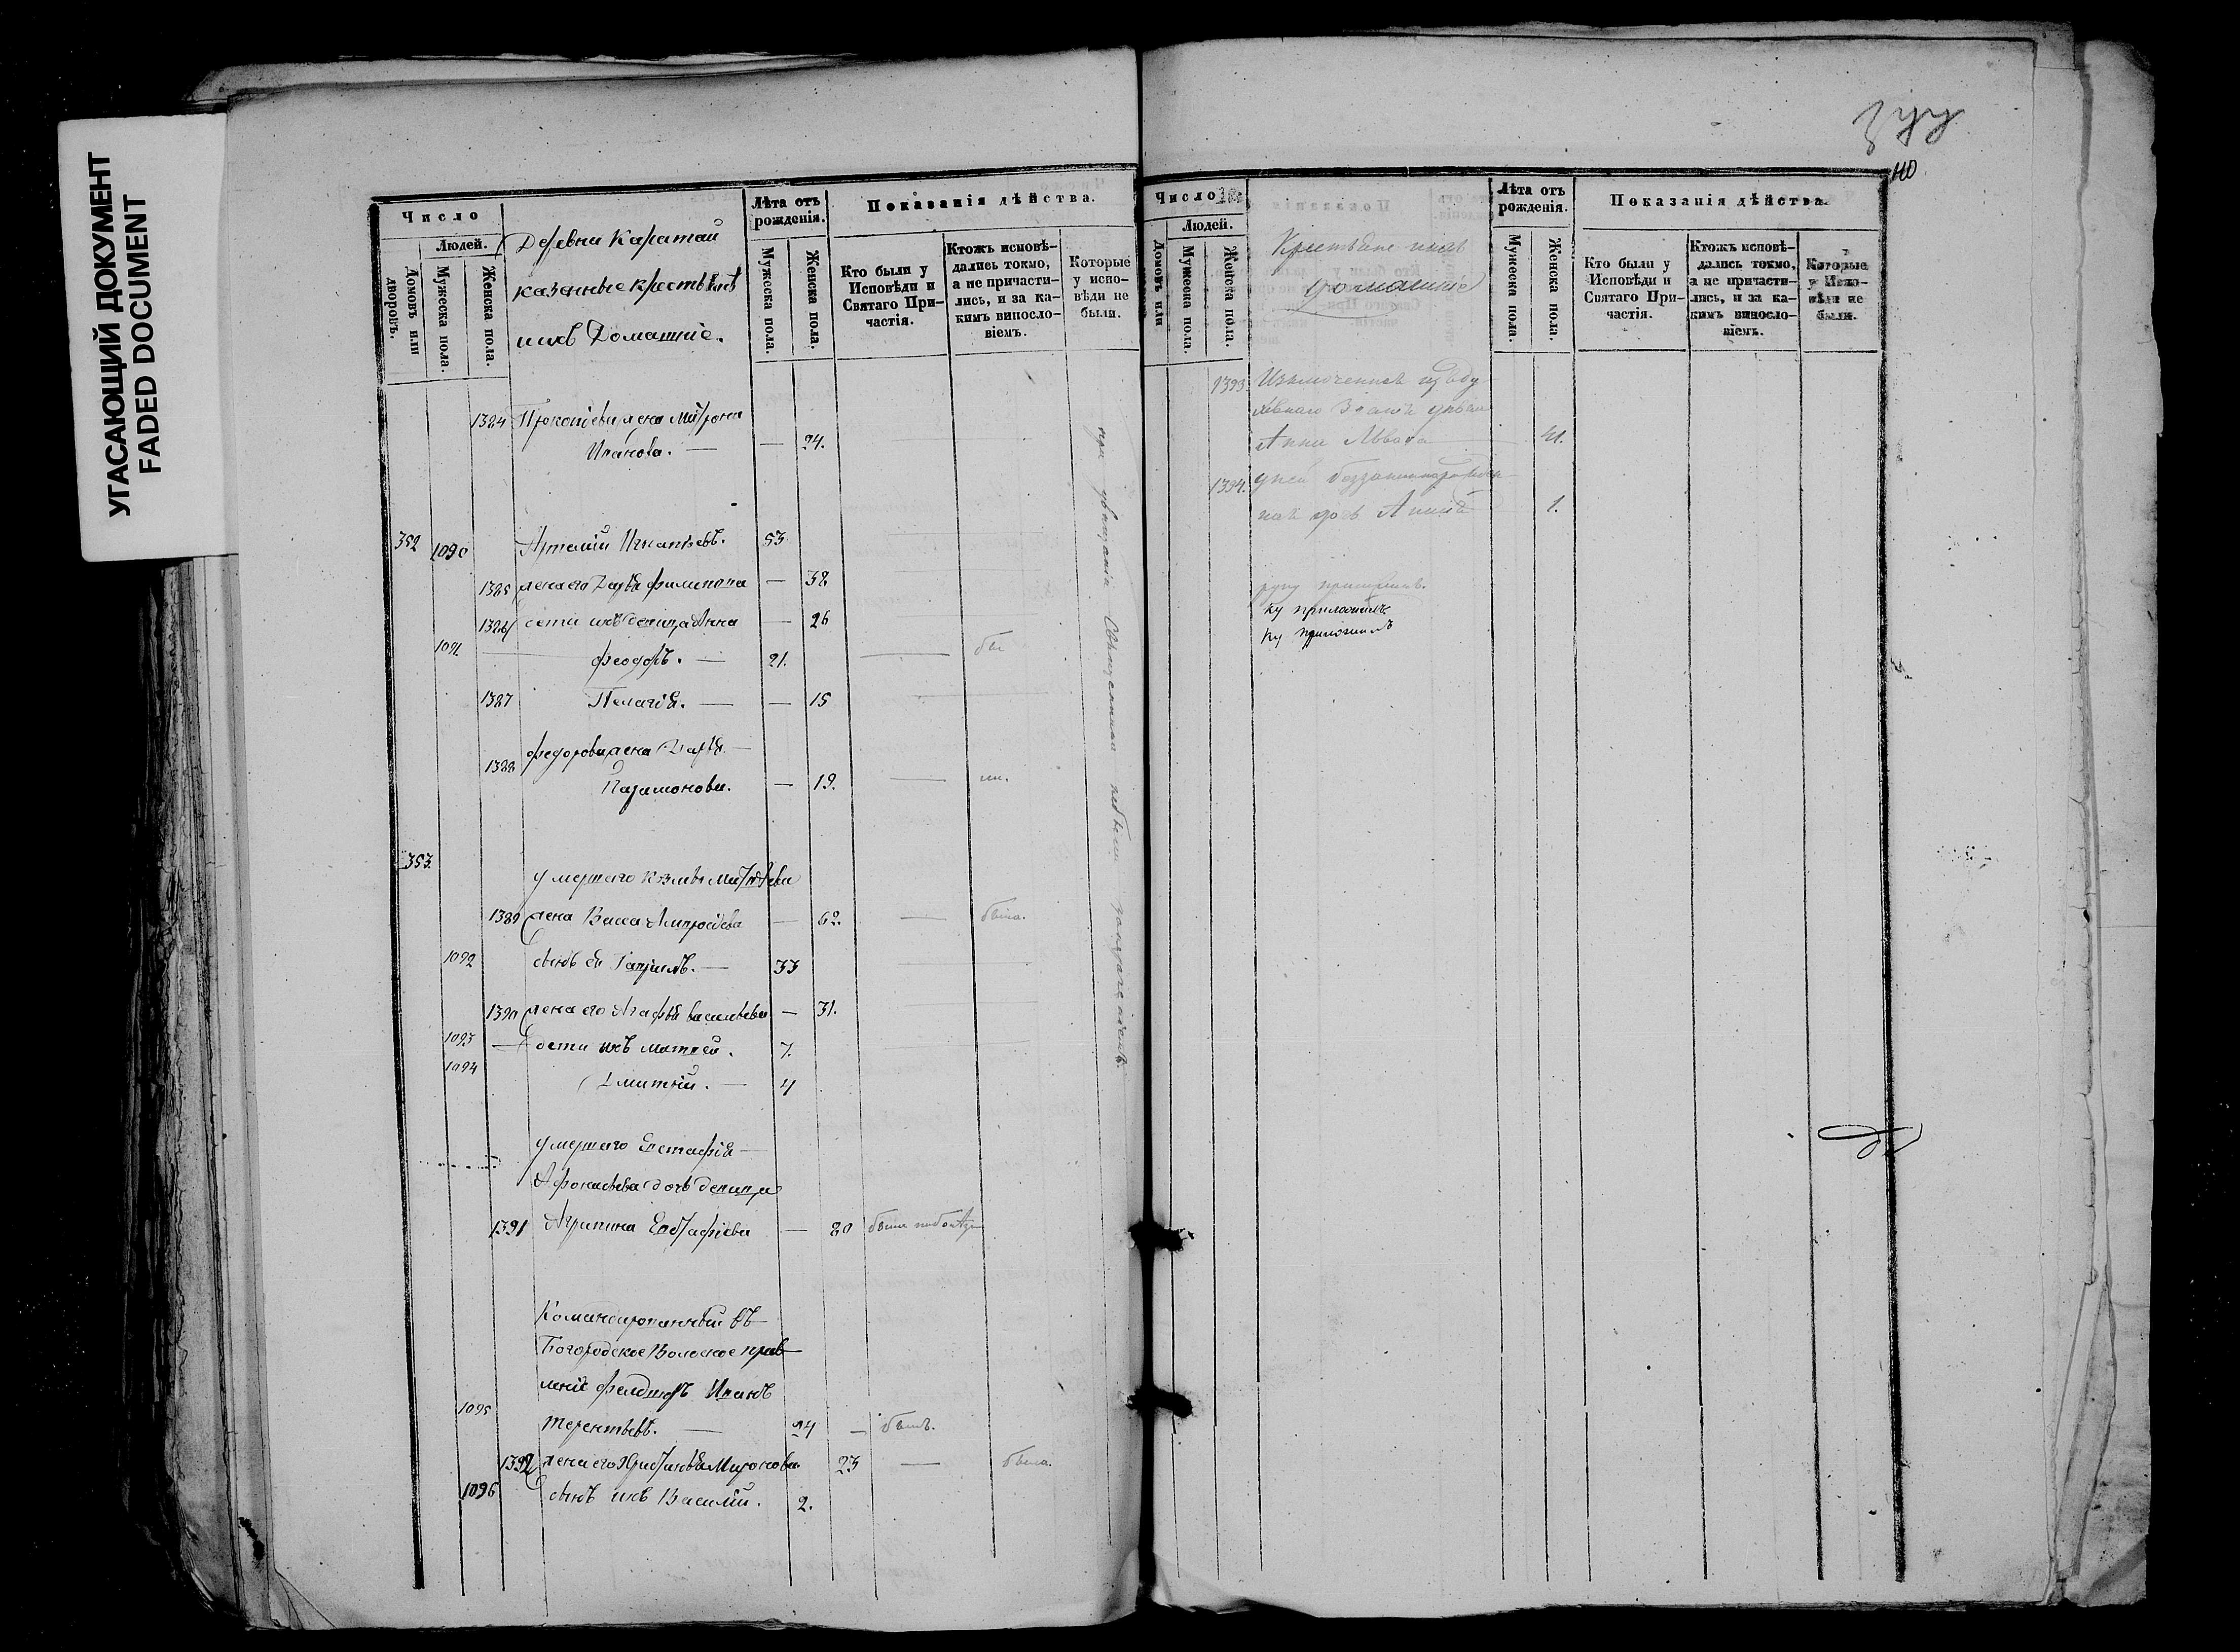 УГАСАЮЩИЙ ДОКУМЕНТ
FADED DOCUMENT
Число
Людей.
Домовъ или дворовъ.
Мужеска пола.
Женска пола.
Деревни Каратай
казенные крестьяне
ихъ Домашніе.
Лѣта отъ рожденія.
Мужеска пола.
Женска пола.
Показанія дѣйства.
Кто были у
Исповѣди и
Святаго При-
частія.
Ктожъ исповѣ-
дались токмо,
а не причасти-
лись, и за ка-
кимъ виносло-
віемъ.
Которые
у испо-
вѣди не
были.
1384 Прокопіева жена Матрона
Иванова. — — 24.
352 1090 Артемій Игнатьевъ. 53
1385 жена его Дарья Филипова — 38
1386 дети ихъ девица Анна — 26
1091 Феодоръ. — 21.
1387 Пелагія. — — 15
1388 Федорова жена Дарья
Парамонова. — 19.
353.
умершего Козмы Матвѣева
1389 жена Васса Амвросіева — 62. — была.
1092 сынъ ея Гавриилъ. — 33
1390 жена его Агафья Васильева — 31.
1093 дети ихъ Матвей. 7.
1094 Дмитрій. — 4
умершего Евстафія
дочь девица
1391 Агрипина Евстафіева — 30
Командированный въ
Богородское Волосное прав
леніе фелдшеръ Иванъ
1095 Терентьевъ. — 24 — былъ.
1392 жена его Миронова 23 — была.
1096 сынъ ихъ Василій. 2.
40
Число
Людей.
Домовъ или
Мужеска пола.
Женска пола.
Крестьяне ихъ
домашніе
Лѣта отъ рожденія.
Мужеска пола.
Женска пола.
Показанія дѣйства.
Кто были у
Исповѣди и
Святаго При-
частія.
Ктожъ исповѣ-
дались токмо,
а не причасти-
лись, и за ка-
кимъ виносло-
віемъ.
Которые
у Испо-
вѣди не
были.
1393 Изключенная изъ ду
ховнаго званія
Анна Львова 41.
1394. у ней беззаконнорожден
ная дочь Анна 1.
руку приложилъ.
ку приложилъ
ку приложилъ